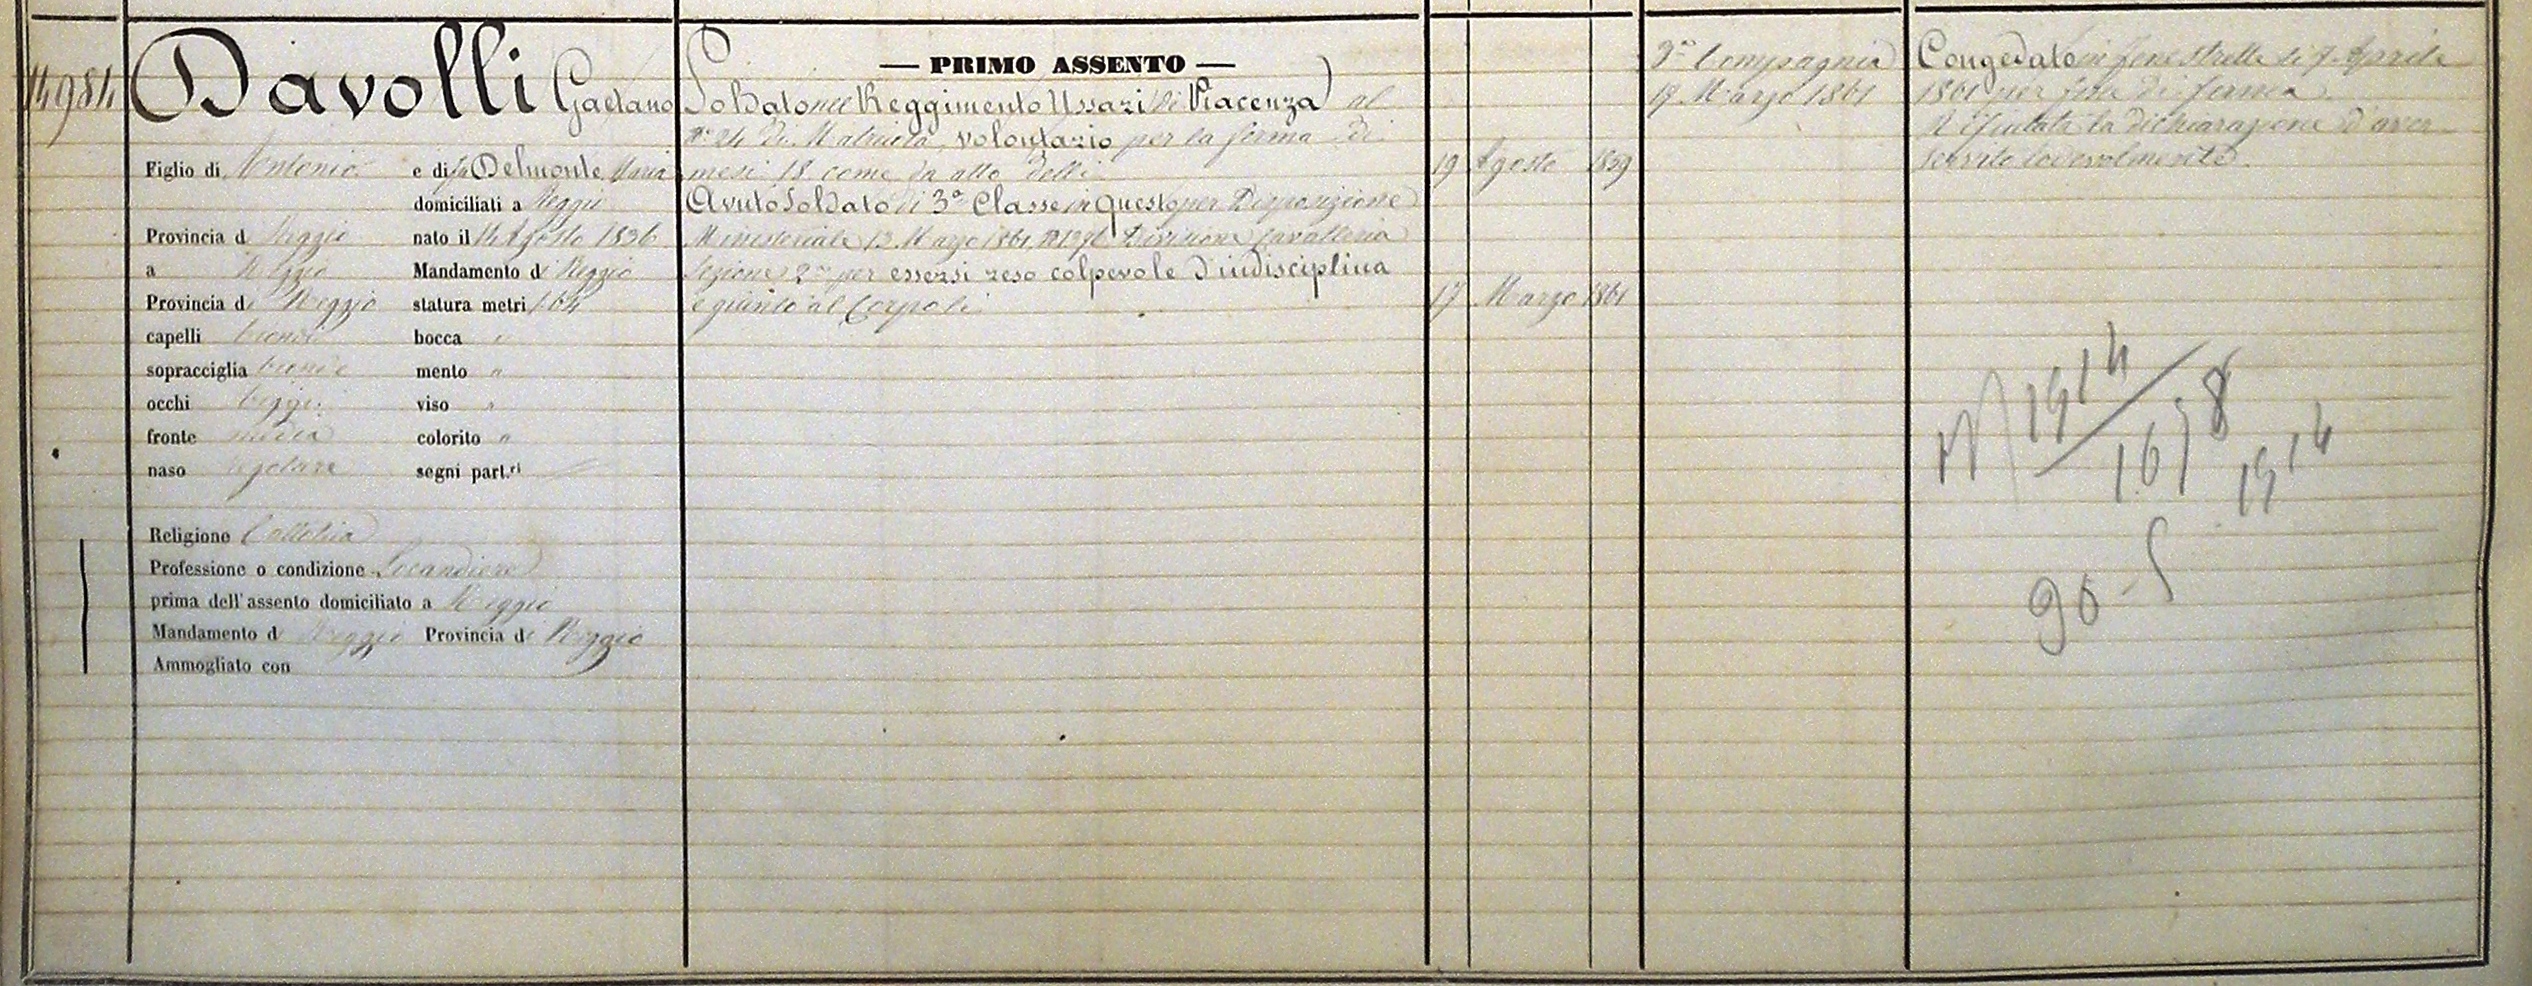 14984
Davolli Gaetano
Figlio di Antonio e di fu Delmonte Maria
domiciliati a Reggio
Provincia di Reggio nato il 14 Agosto 1836
a Reggio Mandamento di Reggio
Provincia di Reggio statura metri 1.64
capelli biondi bocca "
sopracciglia bionde mento "
occhi bigi viso "
fronte media colorito "
naso regolare segni part.ri
Religione Cattolica
Professione o condizione Locandiere
prima dell'assento domiciliato a Reggio
Mandamento di Reggio Provincia di Reggio
Ammogliato con
— PRIMO ASSENTO —
Soldato nel Reggimento Ussari di Piacenza al
N° 24 di Matricola, volontario per la ferma di
mesi 18 come da atto delli 19 Agosto 1859
Avuto Soldato di 3a Classe in questo per Disposizione
Ministeriale 13 Marzo 1861 N 1296 Divisione Cavalleria
Sezione 2a per essersi reso colpevole d'indisciplina
e giunto al Corpo li 17 Marzo 1861
3a Compagnia
19 Marzo 1861
Congedato in Fenestrelle li 7 Aprile
1861 per fine di ferma.
Rifiutata la dichiarazione d'aver
servito lodevolmente.
1914
1678
1914